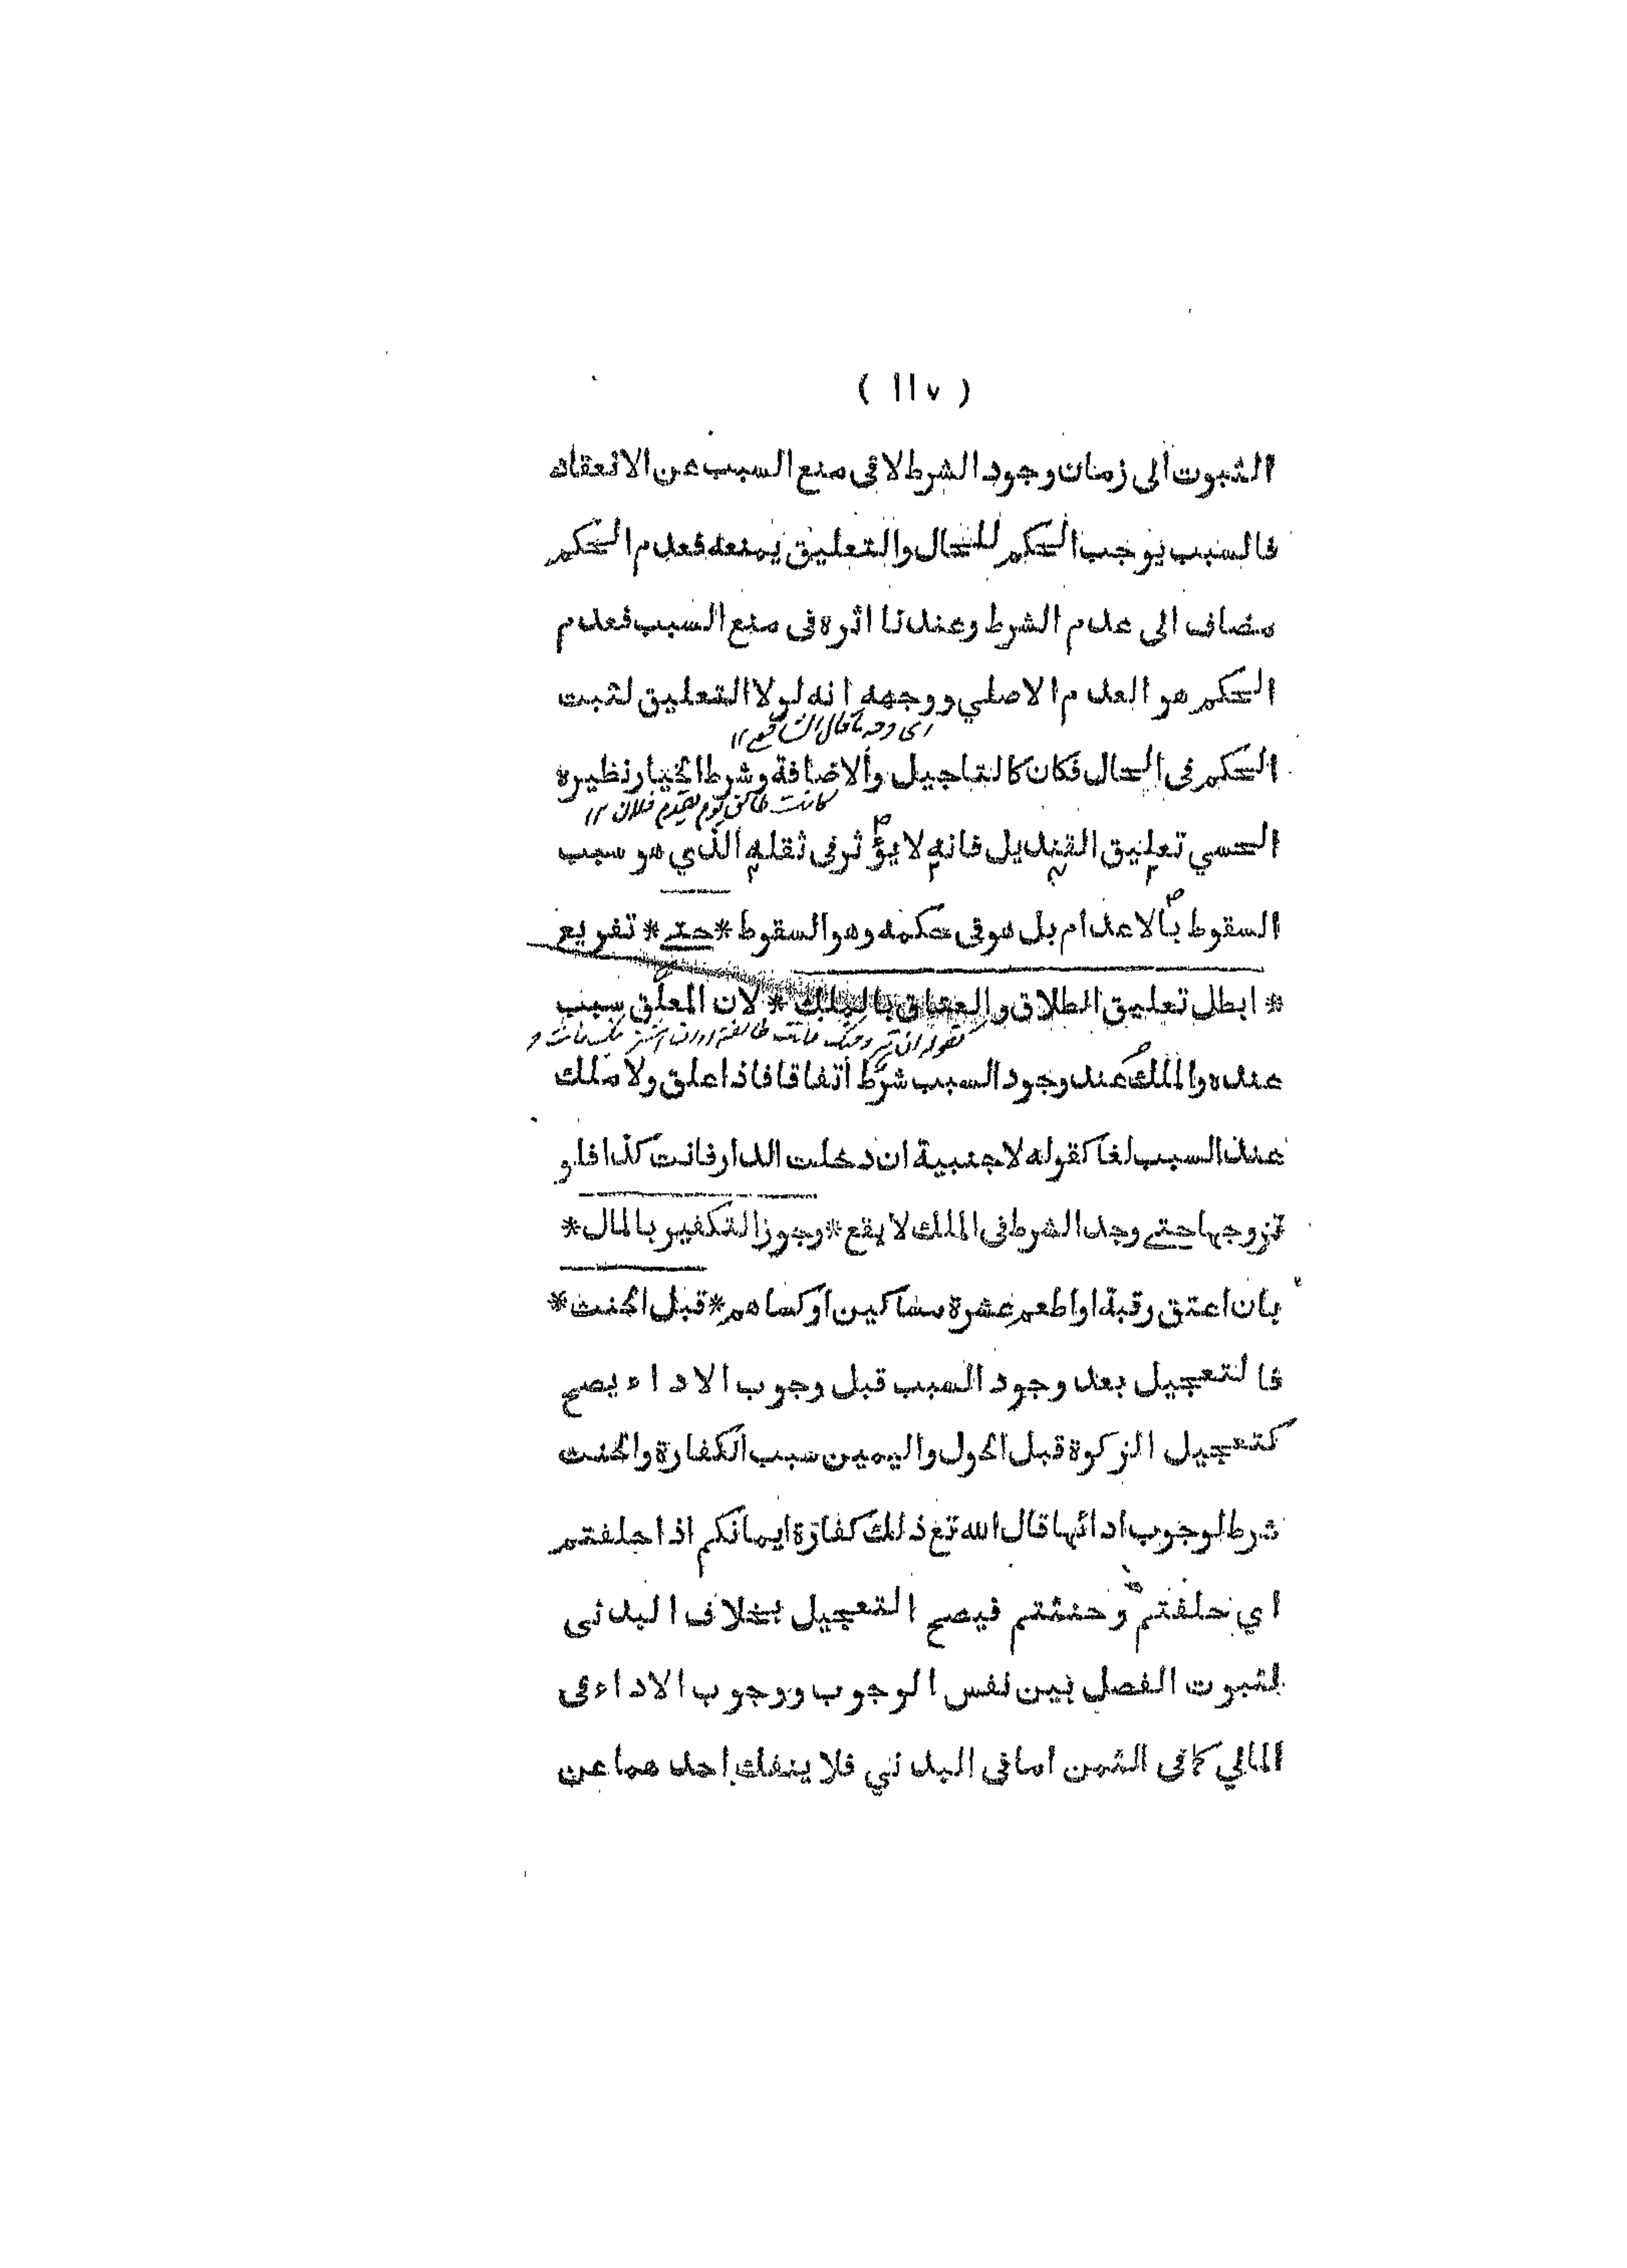 ( ١١٧ )
الثبوت الى زمان وجود الشرط لا فى منع السبب عن الانعقاد
فالسبب يوجب الحكم للحال والتعليق يمنعه فعدم الحكم
مضاف الى عدم الشرط وعندنا اثره فى منع السبب فعدم
الحكم هو العدم الاصلي ووجهه انه لولا التعليق لثبت
اى وجه ما قال الشافعي ١١
الحكم فى الحال فكان كالتاجيل والاضافة وشرط الخيار نظيره
كانت طالق يوم يقدم فلان ١٢
الحسي تعليق القنديل فانه لا يؤثر فى ثقله الذي هو سبب
السقوط بالاعدام بل هو فى حكمه وهو السقوط * حتے * تفريع
* ابطل تعليق الطلاق والعتاق بالملك * لان المعلق سبب
كقوله ان تزوجتك فانت طالق او ان
عنده والملك عند وجود السبب شرط اتفاقا فاذا علق ولا ملك
عند السبب لغا كقوله لاجنبية ان دخلت الدار فانت كذا فلو
تزوجها حتے وجد الشرط فى الملك لا يقع * وجوز التكفير بالمال *
بان اعتق رقبة او اطعم عشرة مساكين او كساهم * قبل الحنث *
فالتعجيل بعد وجود السبب قبل وجوب الاداء يصح
كتعجيل الزكوة قبل الحول واليمين سبب الكفارة والحنث
شرط لوجوب ادائها قال الله تع ذلك كفارة ايمانكم اذا حلفتم
اي حلفتم وحنثتم فيصح التعجيل بخلاف البدنى
لثبوت الفصل بين نفس الوجوب ووجوب الاداء فى
المالي كما فى الثمن اما فى البدني فلا ينفك احدهما عن